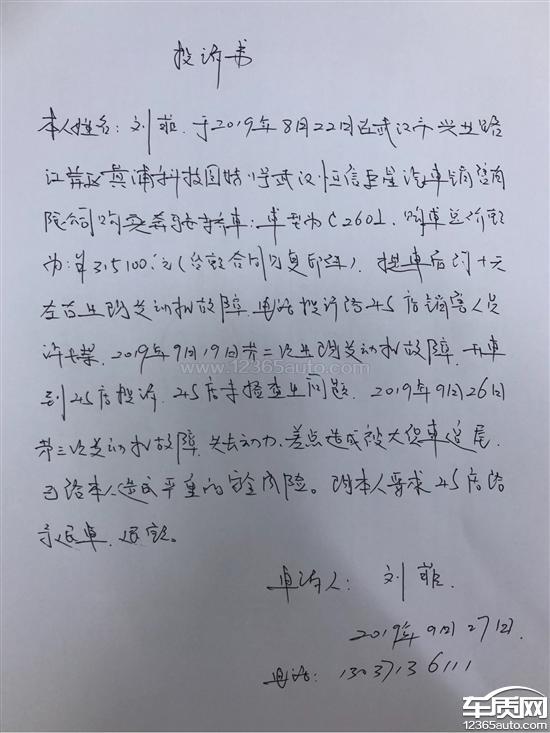 投诉书
本人姓名：刘菲，于2019年8月22日在武汉市兴业路
江岸区黄浦科技园特1号武汉恒信星汽车销售有
限公司购买奔驰车：车型为C260L，购车总价款
为：¥315100元（台款合同为复印件）。提车后约十天
左右出现发动机故障，电话投诉给4S店销售人员
许，2019年9月19日第二次出现发动机故障，开车
到4S店投诉，4S店未检查出问题，2019年9月26日
第三次发动机故障，失去动力，差点造成被大货车追尾，
已给本人造成严重的安全风险。现本人要求4S店给
予退车，退款。
人：刘菲
2019年9月27日
电话：13037136111
www.12365auto.com
车质网
12365auto.com